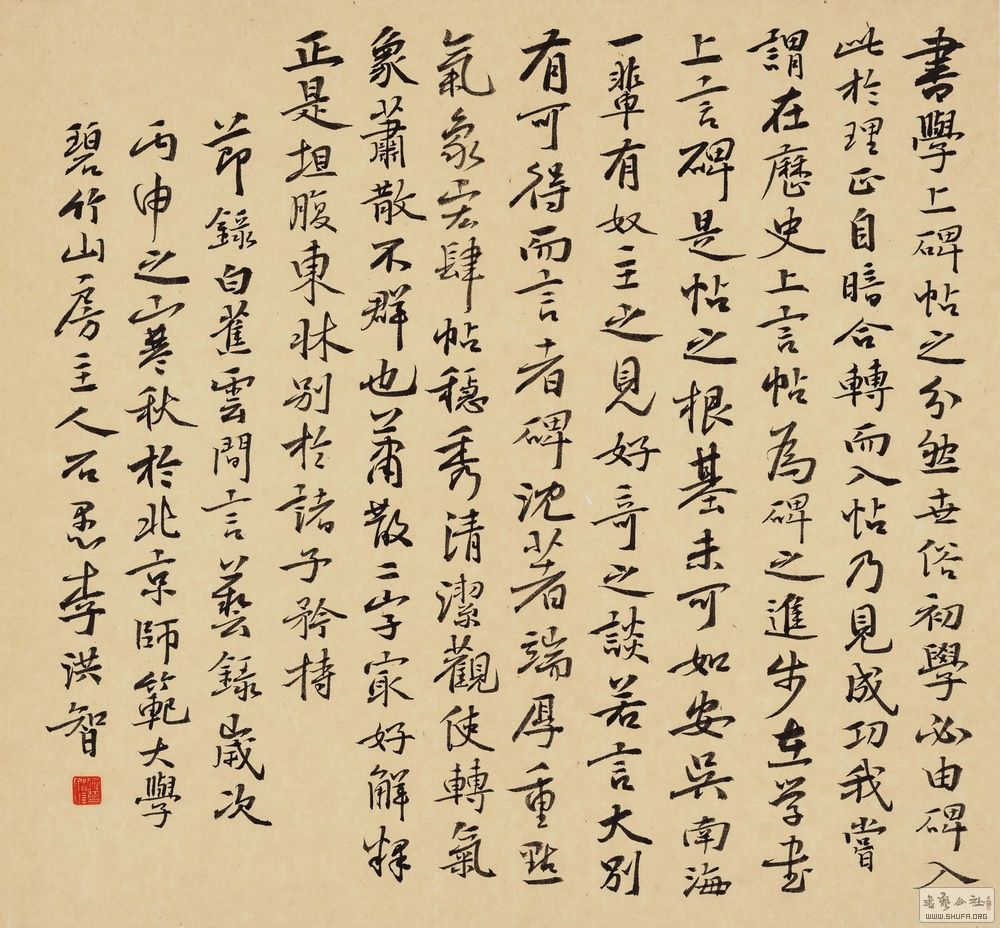 書學上碑帖之分然世俗初學必由碑入
此於理正自暗合轉而入帖乃見成功我嘗
謂在歷史上言帖為碑之進步在学書
上言碑是帖之根基未可如安吳南海
一輩有奴主之見好奇之談若言大別
有可得而言者碑沈著端厚重點
氣象宏肆帖穩秀清潔觀使轉氣
象蕭散不群也蕭散二字最好解釋
正是坦腹東牀別於諸子矜持
節錄白蕉雲間言藝錄歲次
丙申之寒秋於北京師範大學
碧竹山房主人石愚李洪智
書藝公社
WWW.SHUFA.ORG